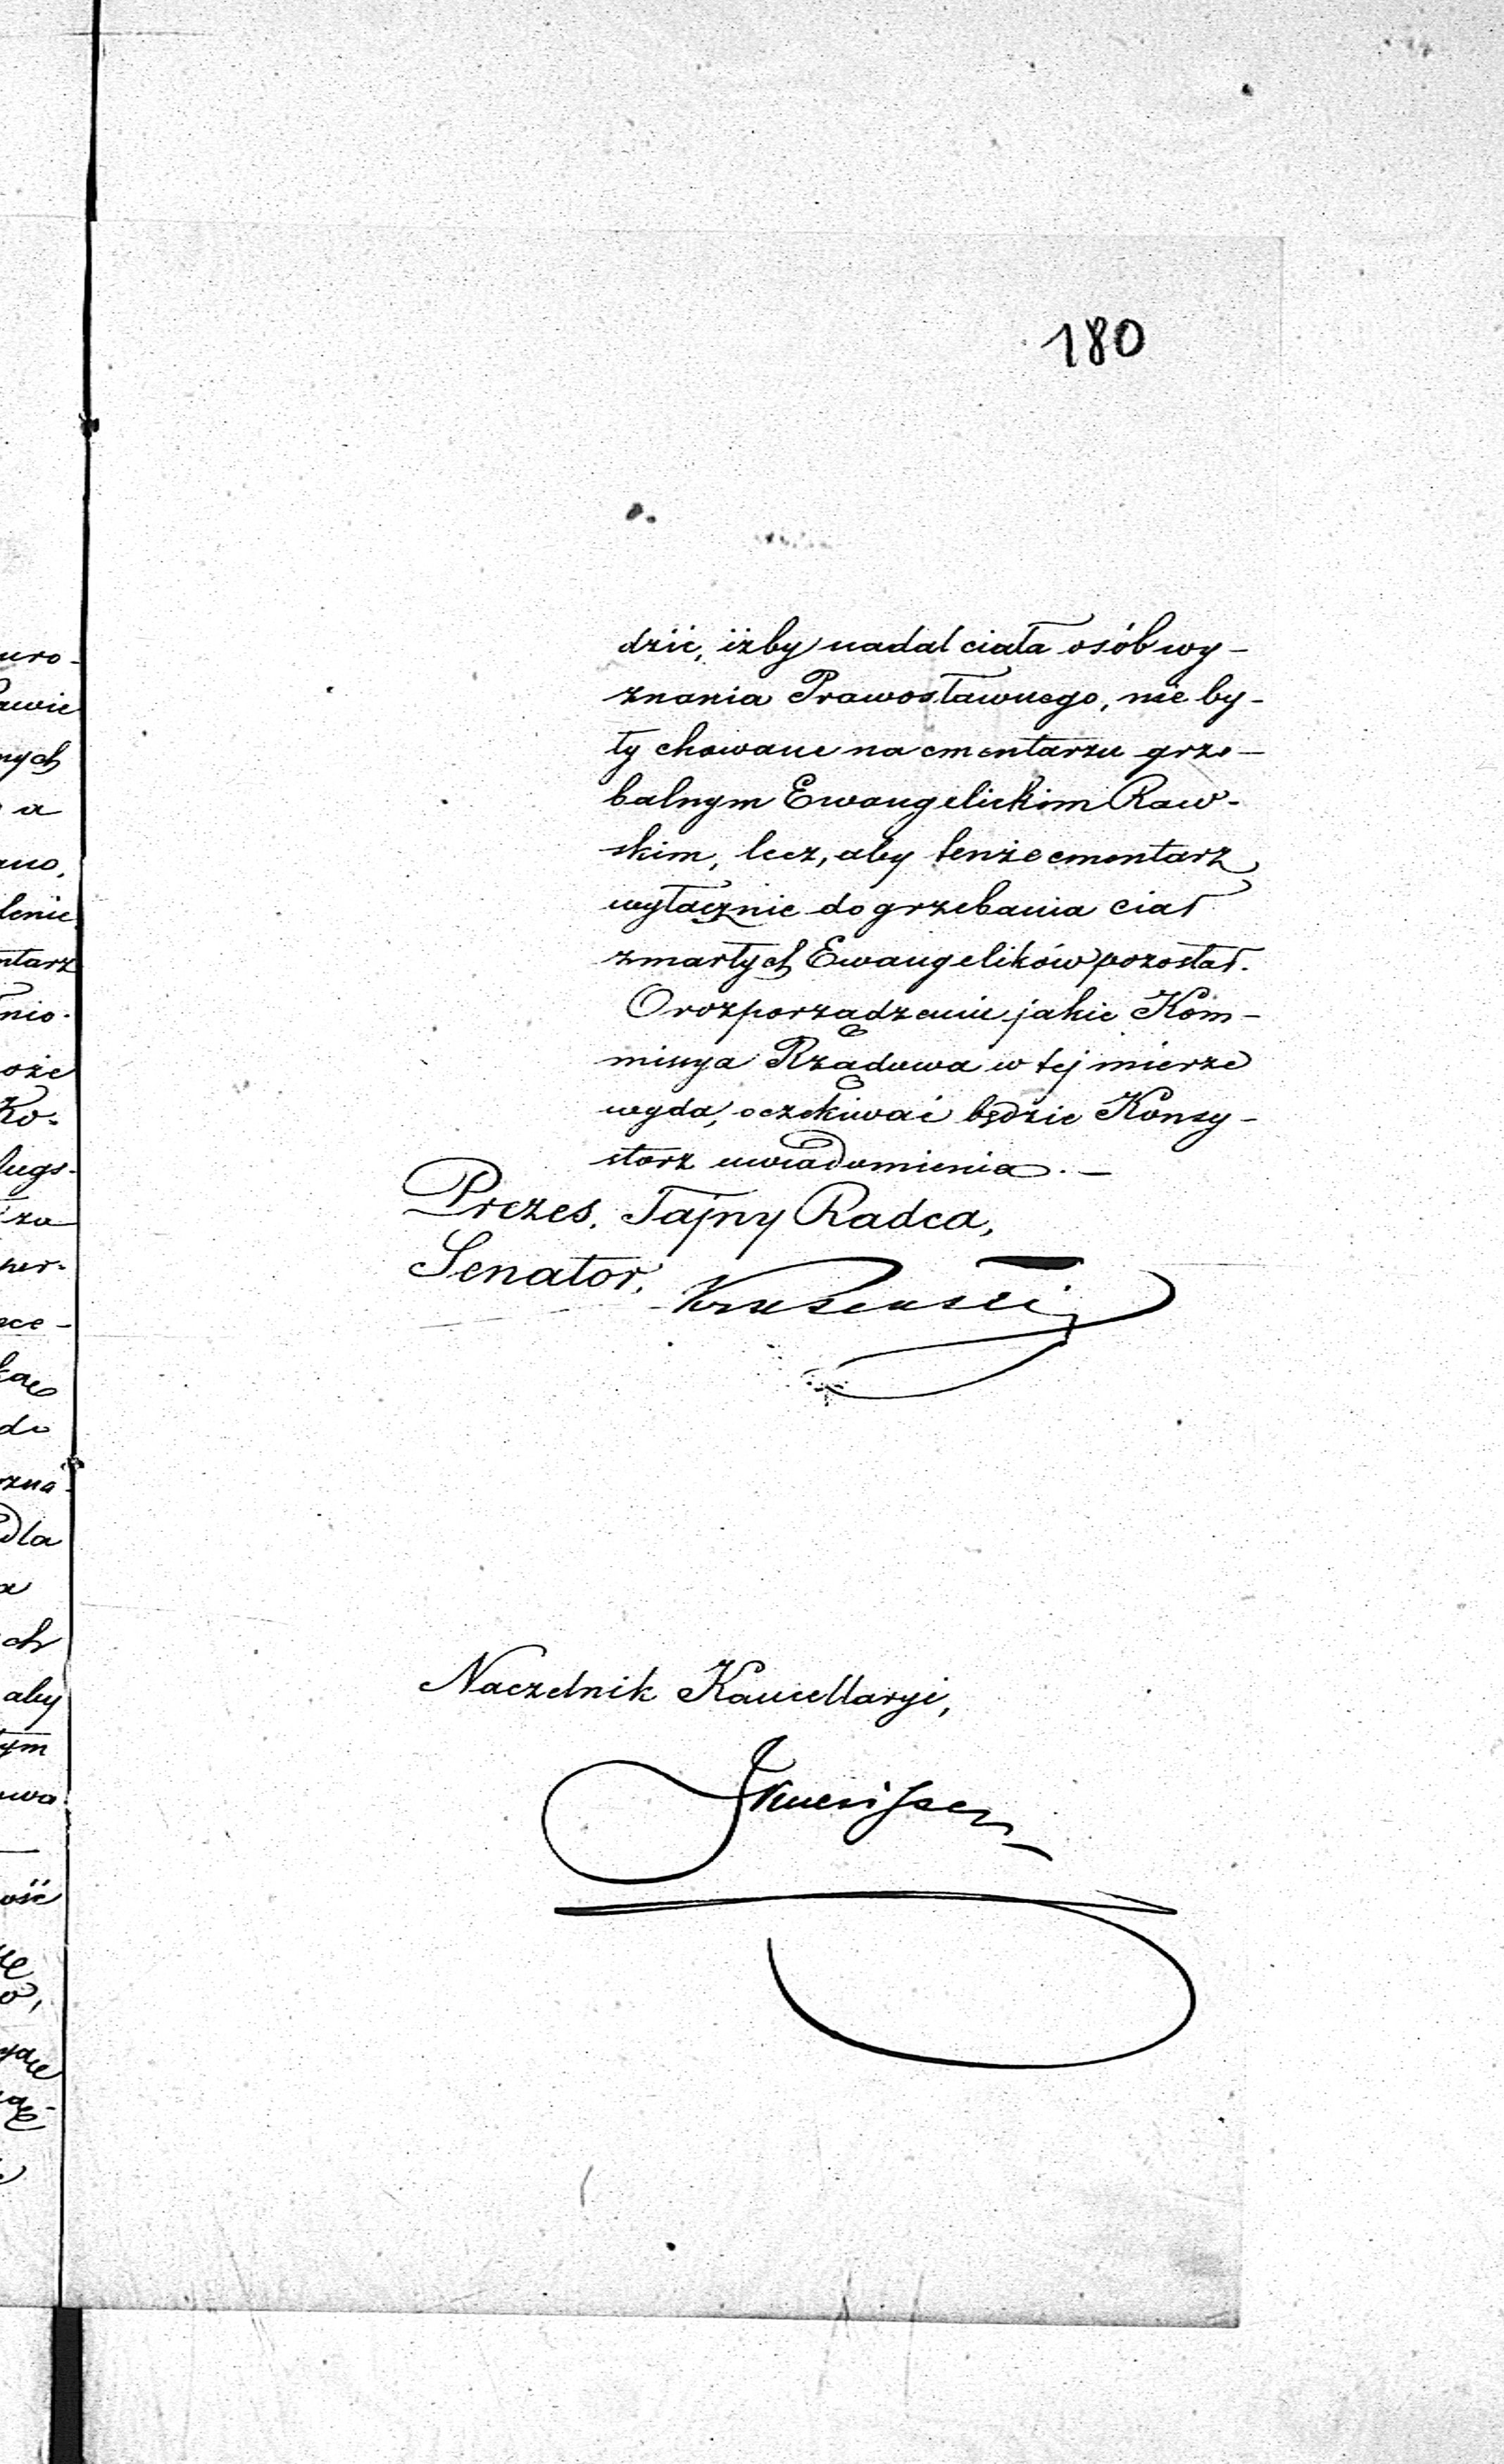 180
dzić, iżby nadal ciała osób wy-
znania Prawosławnego, nie by-
ły chowane na cmentarzu grze-
balnym Ewangelickim Raw-
skim, lecz, aby tenże cmentarz
wyłącznie do grzebania ciał
zmarłych Ewangelików pozostał.
O rozporządzeniu jakie Kom-
missya Rządowa w tej mierze
wyda, oczekiwać będzie Konsy-
storz uwiadomienia. —
Prezes, Tajny Radca,
Senator,
Naczelnik Kancellaryi,
uro-
awie
nych
a
ano,
lenie
ntarz
nio-
oże
Ko-
ługs-
za
per-
ace-
kae
do
zna-
Dla
a
ch
aby
tym
owa
ość